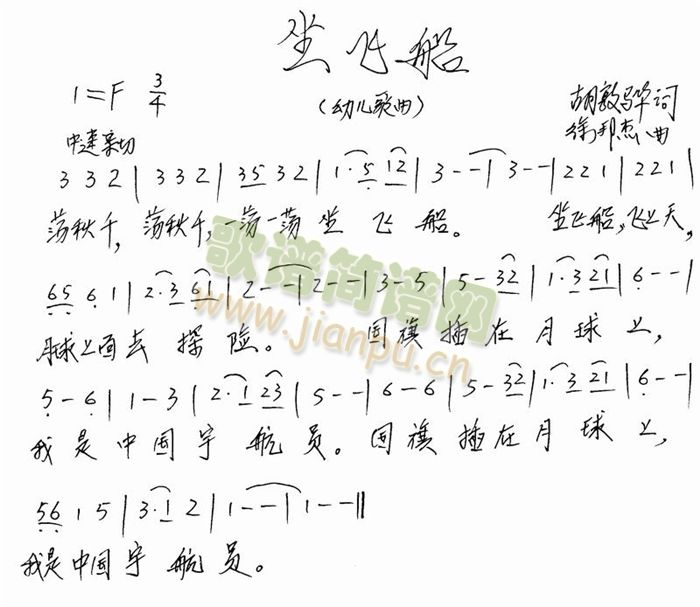 坐飞船
1=F 3/4
(幼儿歌曲)
胡敦骅词
徐邦杰曲
中速亲切
3 3 2 | 3 3 2 | 35 32 | 1·5 12 | 3 - - | 3 - - | 2 2 1 | 2 2 1 |
荡秋千, 荡秋千, 一荡一荡 坐 飞 船。 坐飞船, 飞上天,
65 6 1 | 2·3 61 | 2 - - | 2 - - | 3 - 5 | 5 - 32 | 1·3 21 | 6 - - |
月球上面去 探 险。 国旗 插在 月 球 上,
5 - 6 | 1 - 3 | 2·1 23 | 5 - - | 6 - 6 | 5 - 32 | 1·3 21 | 6 - - |
我是 中国 宇 航 员。 国旗 插在 月 球 上,
56 1 5 | 3·1 2 | 1 - - | 1 - - ||
我是中国宇 航 员。
歌谱简谱网
www.jianpu.cn